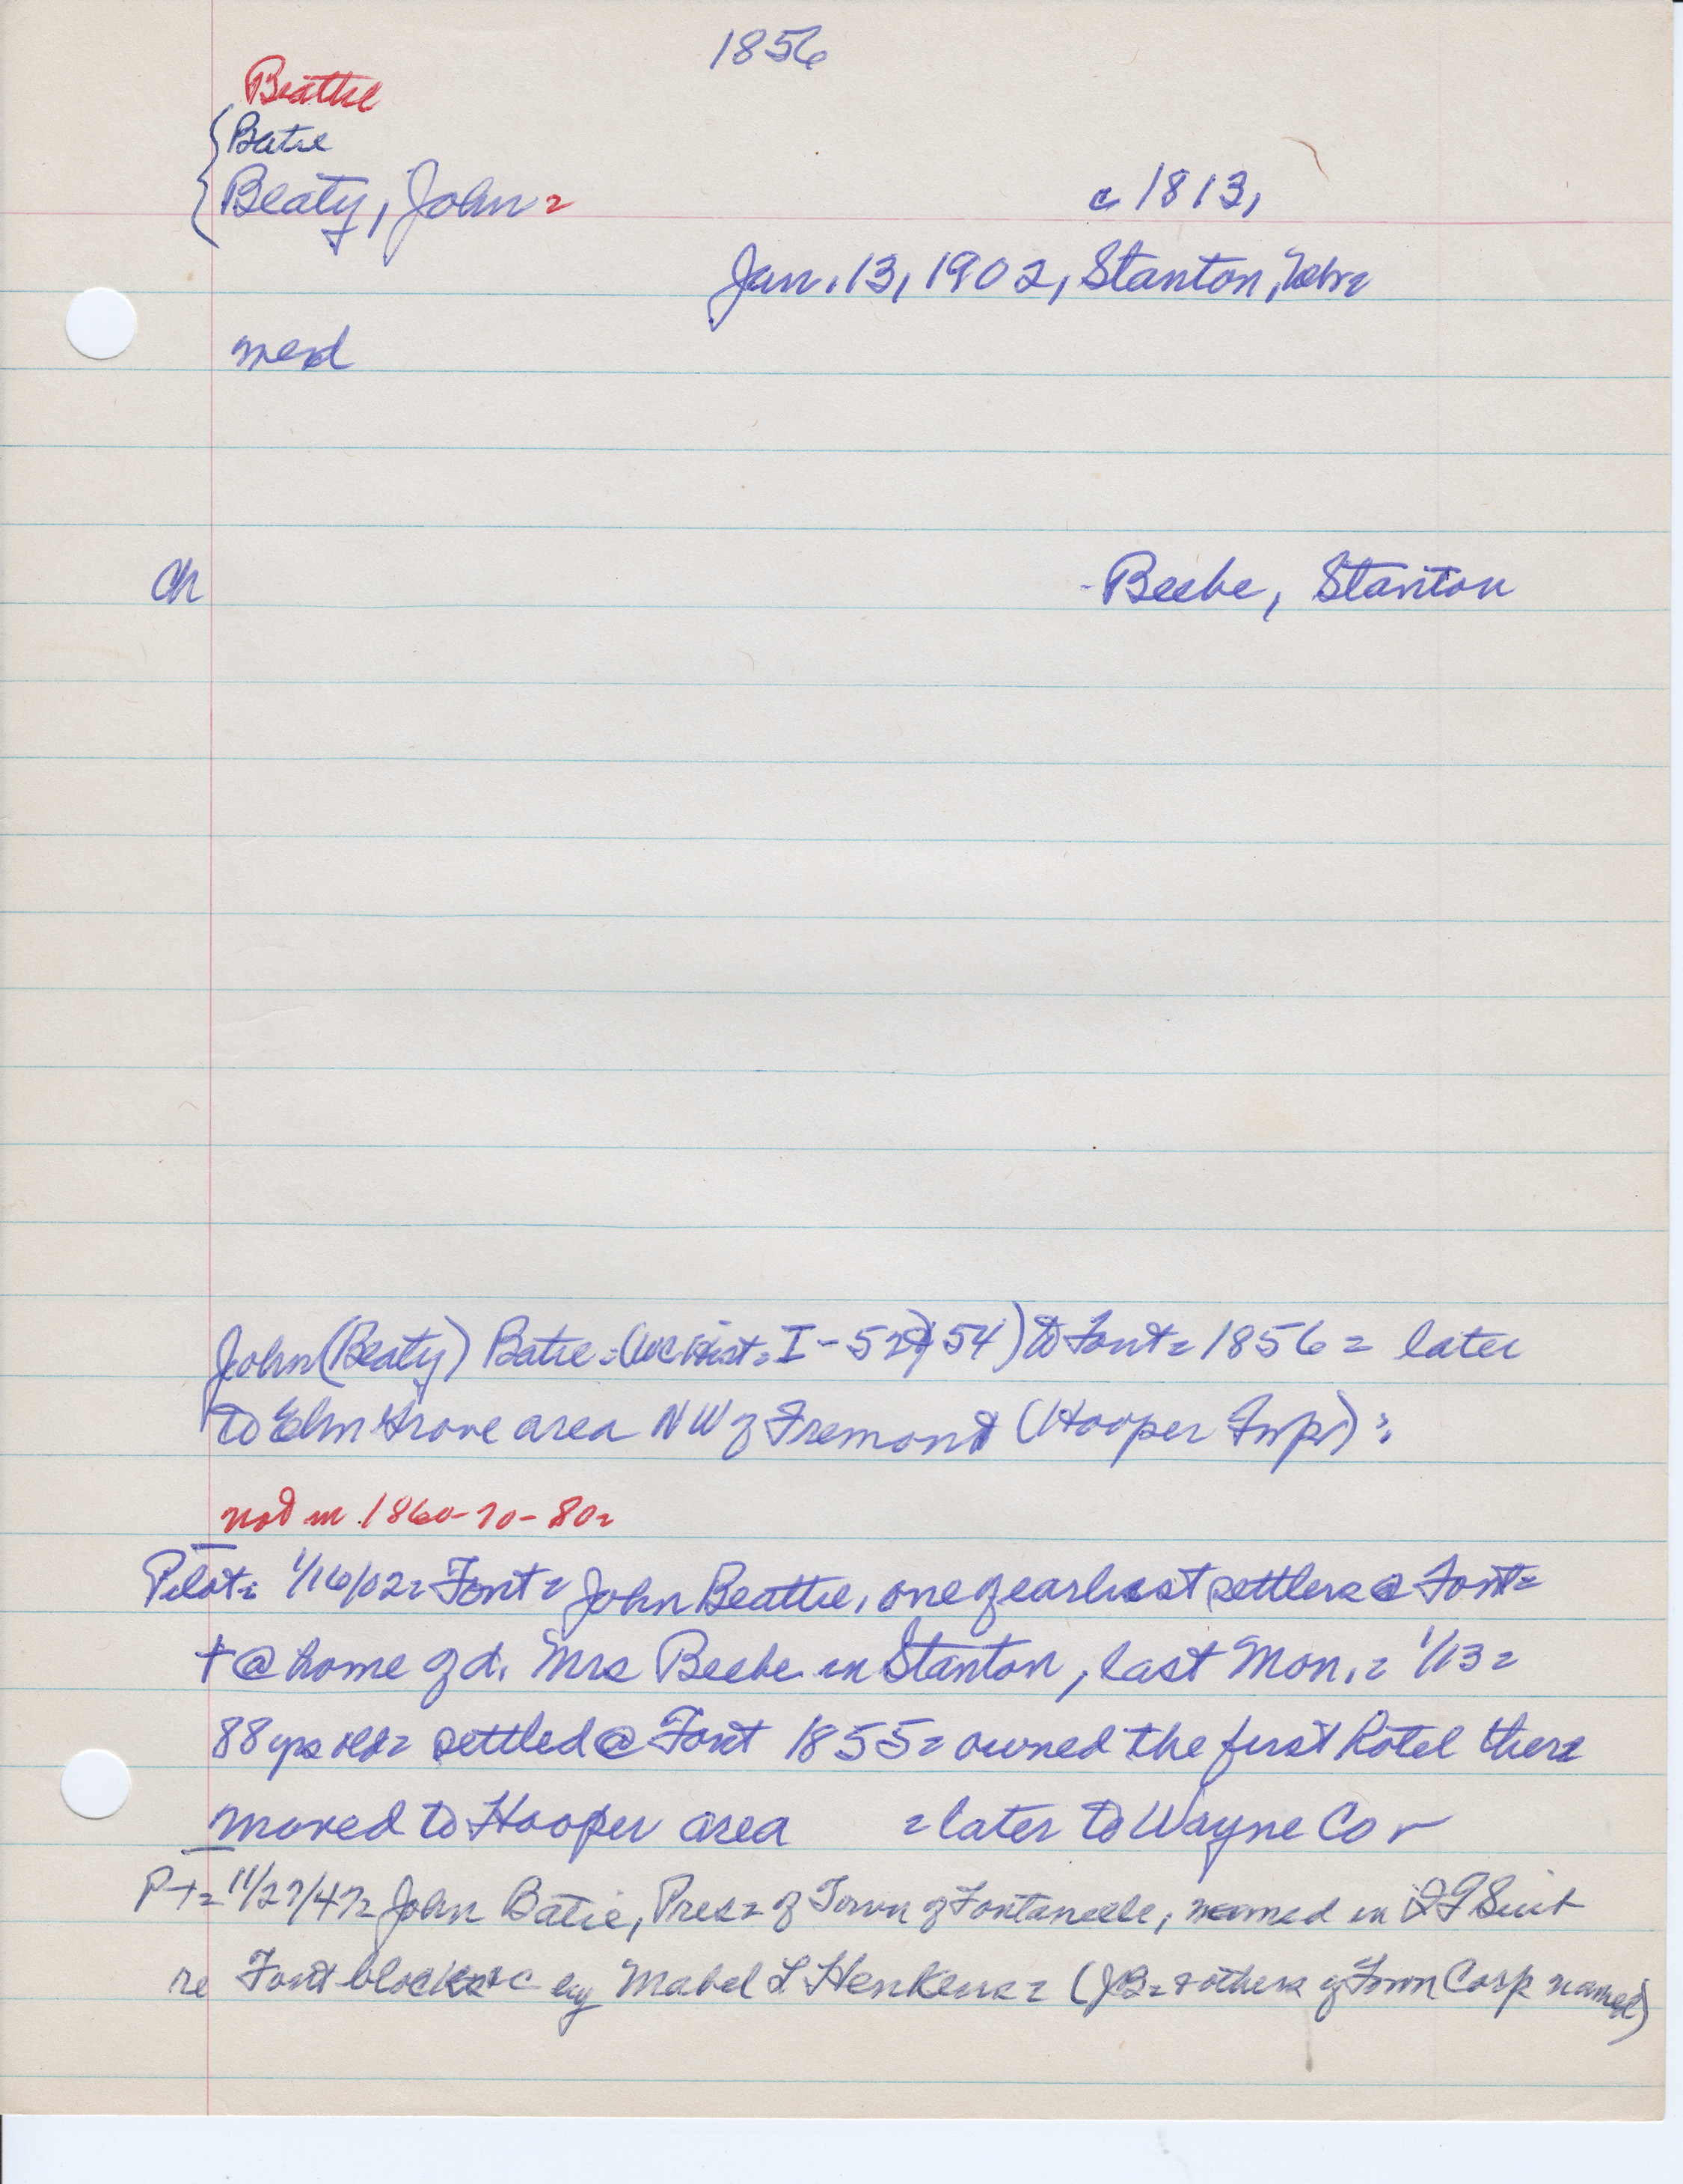 1856
Beattie
Batie
Beaty, John =
c 1813,
Jan. 13, 1902, Stanton, Nebr=
med
Ch
- Beebe, Stanton
John (Beaty) Batie = (WC Hist = I - 52 54) to Font = 1856 = later
to Elm Grove area NW of Fremont (Hooper Twp) =
not in 1860-70-80=
Pilot = 1/16/02 = Font = John Beattie, one of earliest settlers @ Font =
† @ home of d. Mrs Beebe in Stanton, last Mon. = 1/13 =
88 yrs old = settled @ Font 1855 = owned the first hotel there
moved to Hooper area = later to Wayne Co
P-T = 11/27/47 = John Batie, Pres = of Town of Fontanelle, named in Suit
re Font blocks by Mabel L Henkens = (JB = + others of Town Corp named)